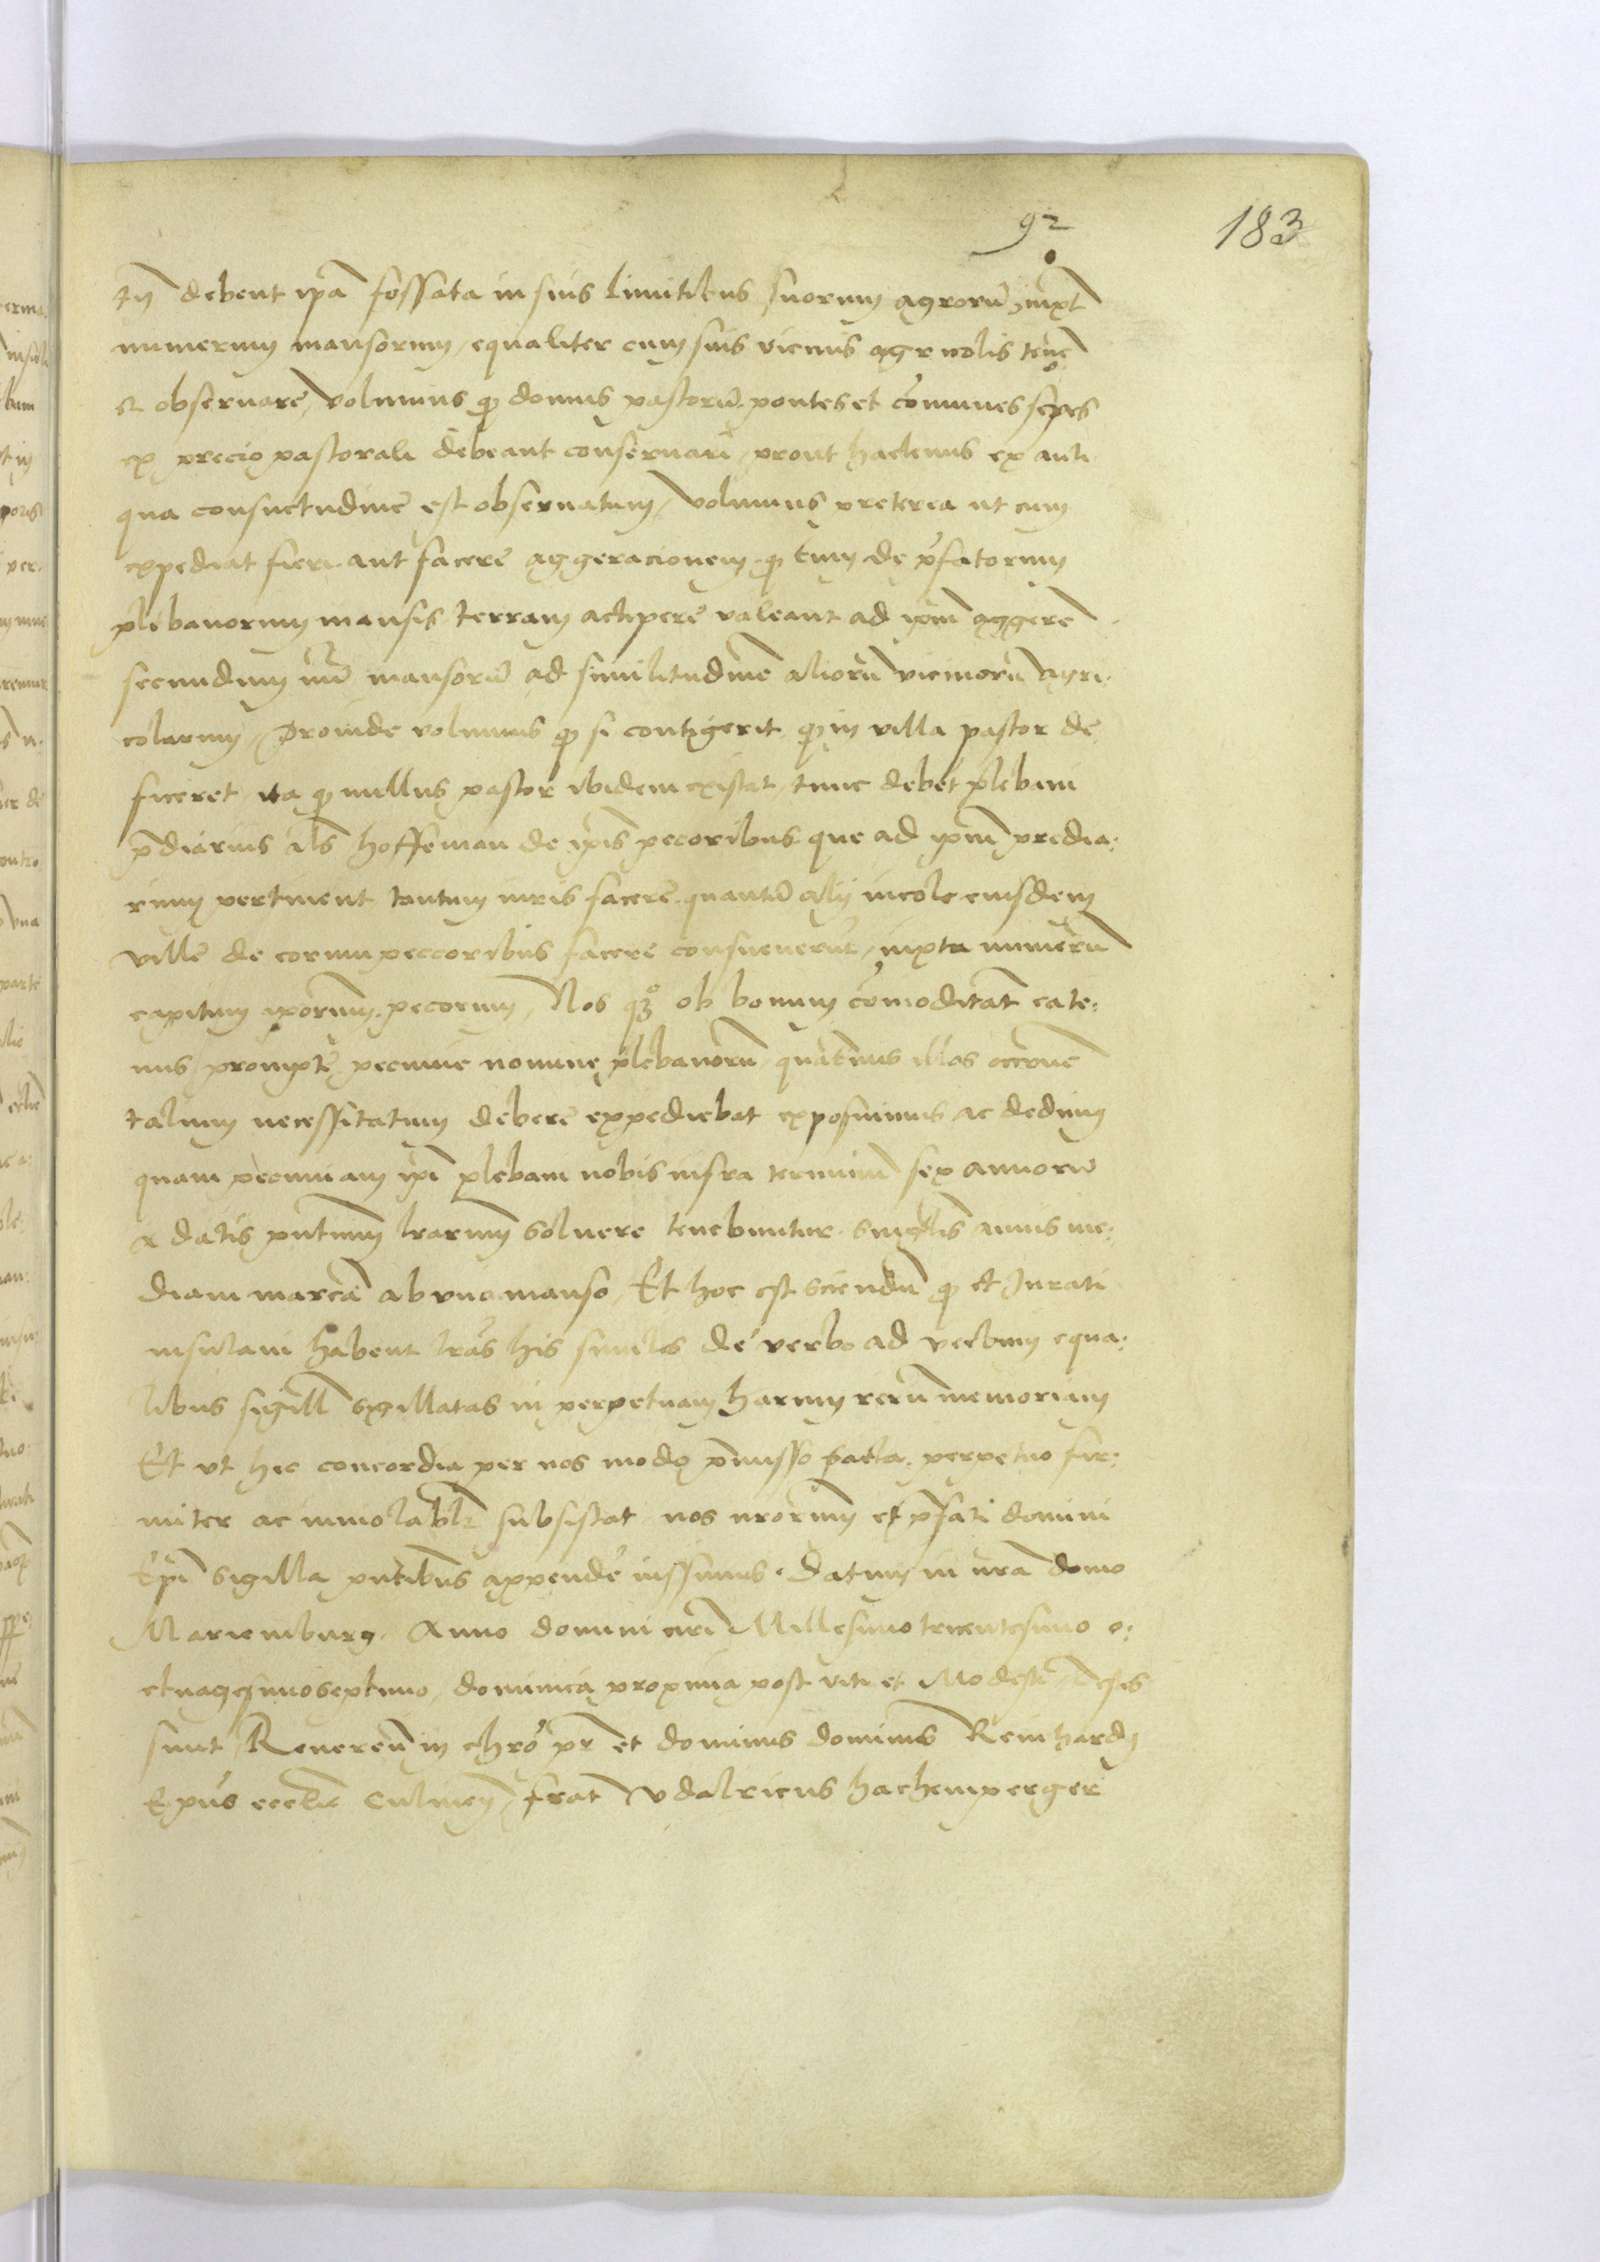 92
183
tn̄ debent ip̄a fossata in suis limitibus suorum agrorū iuxt
numerum mansorum equaliter cum suis vicinis agricolis tene
et obseruare, volumus q̢ domus pastorū pontes et cōmunes sepes
ex precio pastorali debeant conseruari, prout hactenus ex anti
qua consuetudine est obseruatum, volumus preterea ut cum
expediat fieri aut facere aggeracionem q̢ tum de p̄fatorum
plebanorum mansis terram accipere valeant ad ip̄m aggerē
secundum nūm mansorū ad similitudinē aliorū vicinorū agri
colarum, Proinde volumus q̢ si contigerit q̢ in villa pastor de
ficeret, ita q̢ nullus pastor ibidem existat, tunc debet plebani
p̄diarius al̄s hoffeman de ip̄is pecoribus que ad ip̄m predia:
rium pertinent tantum iuris facere quantū alij incole eiusdem
ville de eorum peccoribus facere consueuerūt, iuxta numerū
capitum ip̄orum pecorum, Nos ob bonum cōmoditatē eate:
nus prompte pecunie nomine plebanorū quatenus illos
talium necessitatum debere expediebat exposuimus ac dedimus
quam pecuniam ip̄i plebani nobis infra terminū sex annorū
a datis pn̄tium l̄rarum soluere tenebuntur singulis annis me:
diam marcā ab vno manso, Et hoc est sciendū q̢ et Jurati
insulani habent l̄ras his similes de verbo ad verbum equa:
libus sigill̄ sigillatas in perpetuam harum rerū memoriam
Et vt hec concordia per nos modo p̄misso facta perpetuo fir:
miter ac inuiolabl̄r subsistat nos nr̄orum et p̄fati domini
Ep̄i sigilla pn̄tibus appende iussimus. Datum in nr̄a domo
Mariemburg. Anno domini Millesimo tricentesimo o:
ctuagesimoseptimo, dominica proxima post viti et Modesti, Testes
sunt Reuerendū in chr̄o pr̄ et dominus dominus Reinhardus
Ep̄us eccl̄ie Culmen̄, frat̄ Vdalricus hachemperger